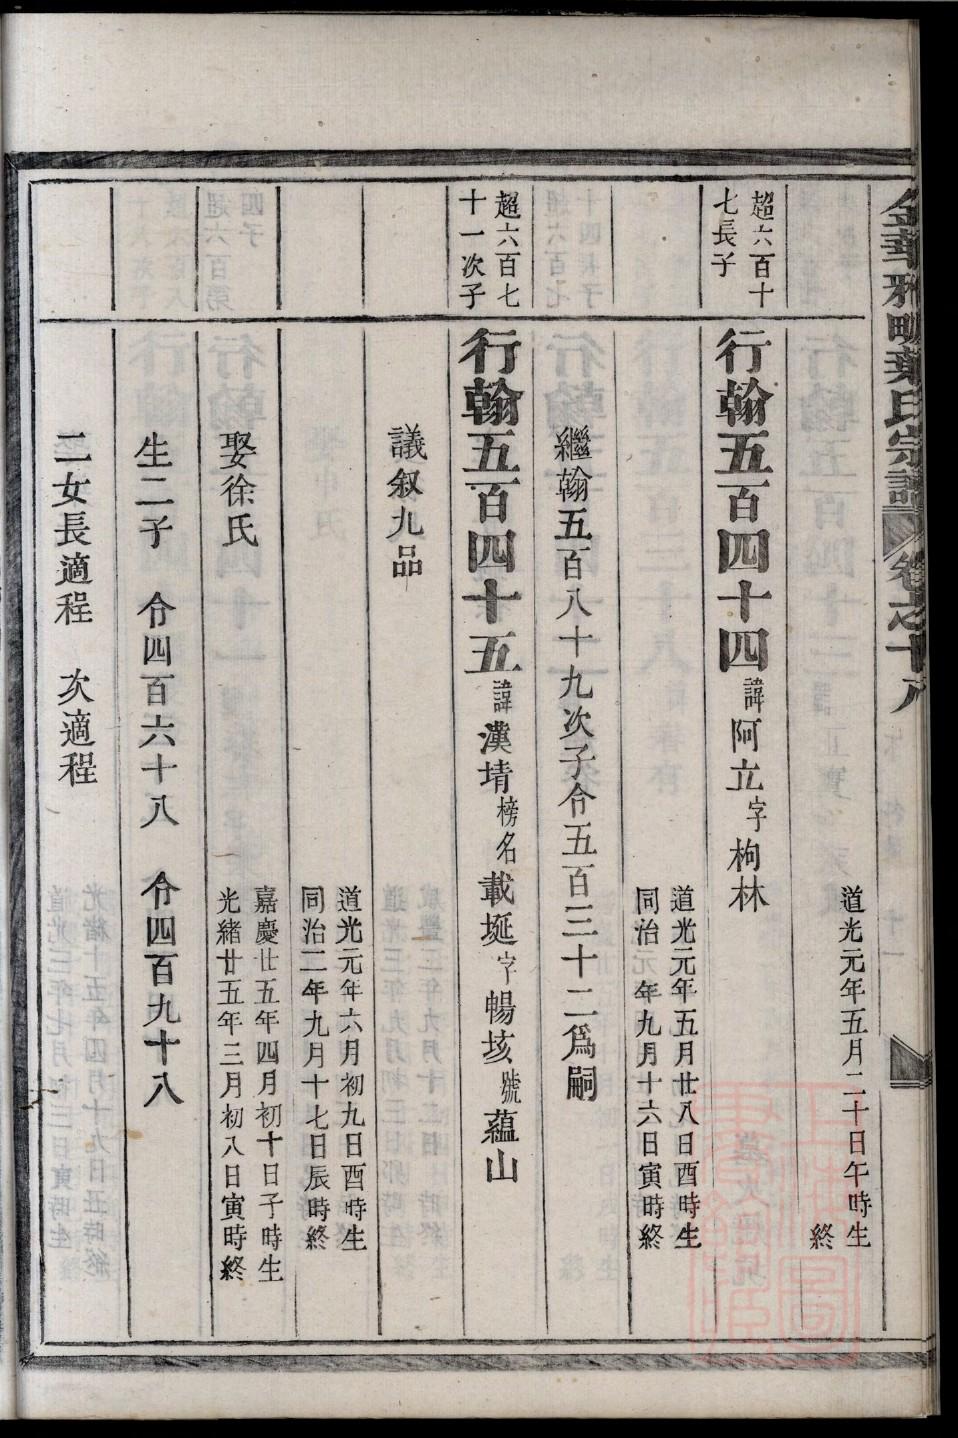 金華雅畈葉氏宗譜 卷之十八
道光元年五月二十日午時生
終
超六百十
七長子
行翰五百四十四 諱阿立 字枸林
道光元年五月廿八日酉時生
同治 年九月十六日寅時終
繼翰五百八十九次子令五百三十二爲嗣
超六百七
十一次子
行翰五百四十五 諱漢埥 榜名載埏 字暢垓 號蘊山
議叙九品
道光元年六月初九日酉時生
同治二年九月十七日辰時終
娶徐氏
嘉慶廿五年四月初十日子時生
光緒廿五年三月初八日寅時終
生二子 令四百六十八 令四百九十八
二女長適程 次適程